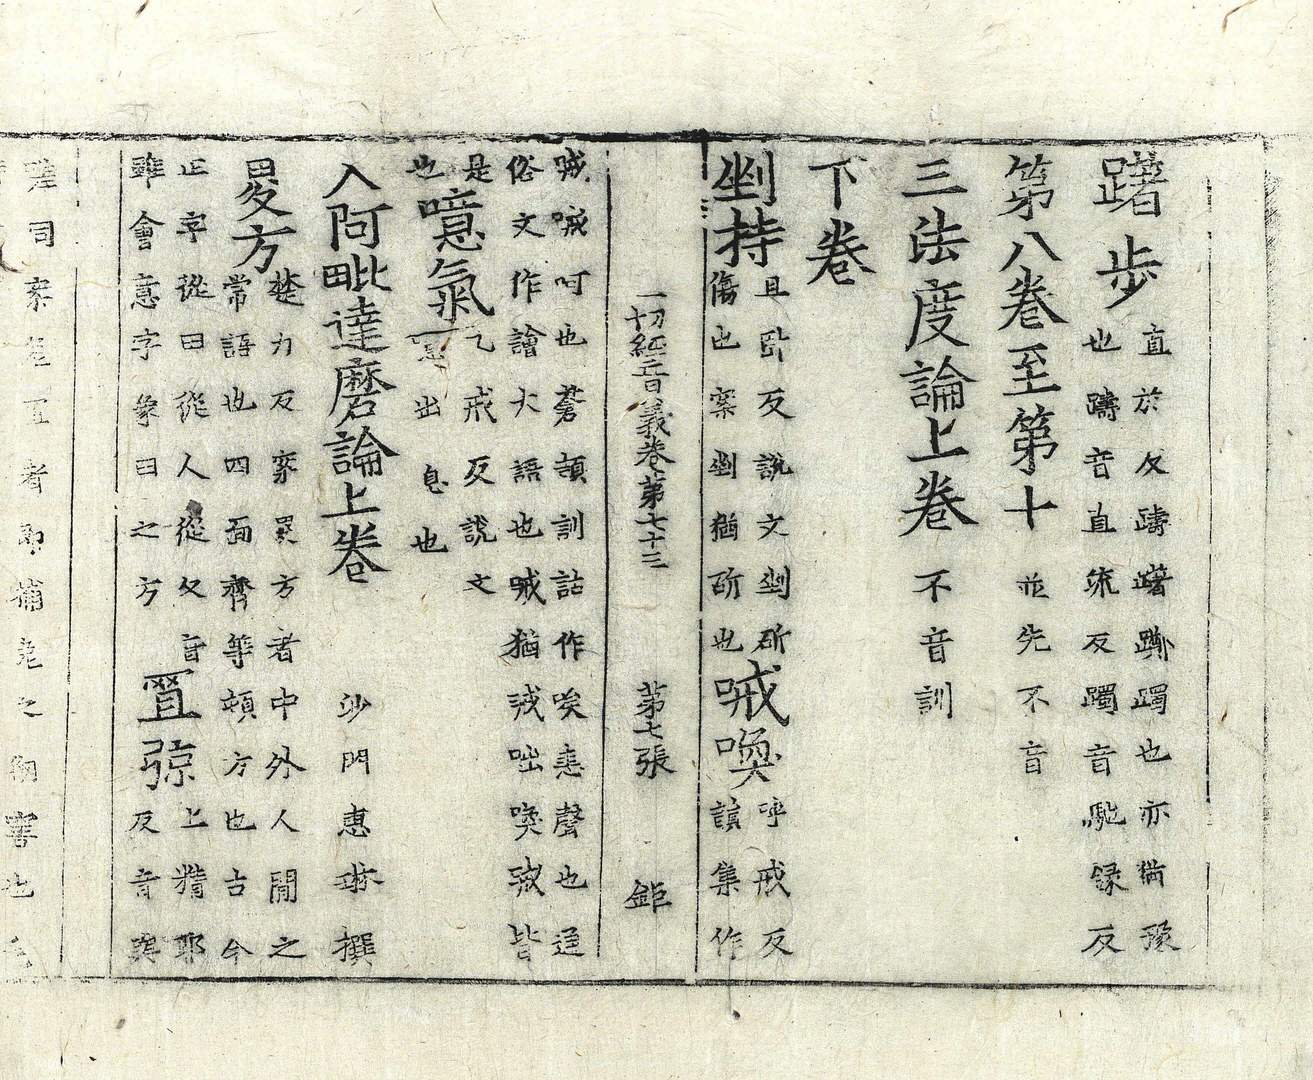 躇步直於反躊躇躑躅也亦猶豫
也躊音直流反躅音馳録反
第八卷至第十 並先不音
三法度論上卷 不音訓
下卷
剉持且卧反說文剉斫
傷也案剉猶斫也
㖑喚呼戒反
集作
一切經音義卷第七十三 第七張 鉅
㖑㖑呵也蒼頡訓詁作唉恚聲也通
俗文作譮大語也㖑猶㖑咄喚㖑皆
是
也
噫氣乙戒反說文
噫出息也
入阿毗達磨論上卷 沙門惠琳撰
畟方楚力反案畟方者中外人間之
常語也四面齊等頓方也古今
正字從田從人從夂音
雖會意字象田之方
罝弶上精耶
反音與
同案者即捕兔之也